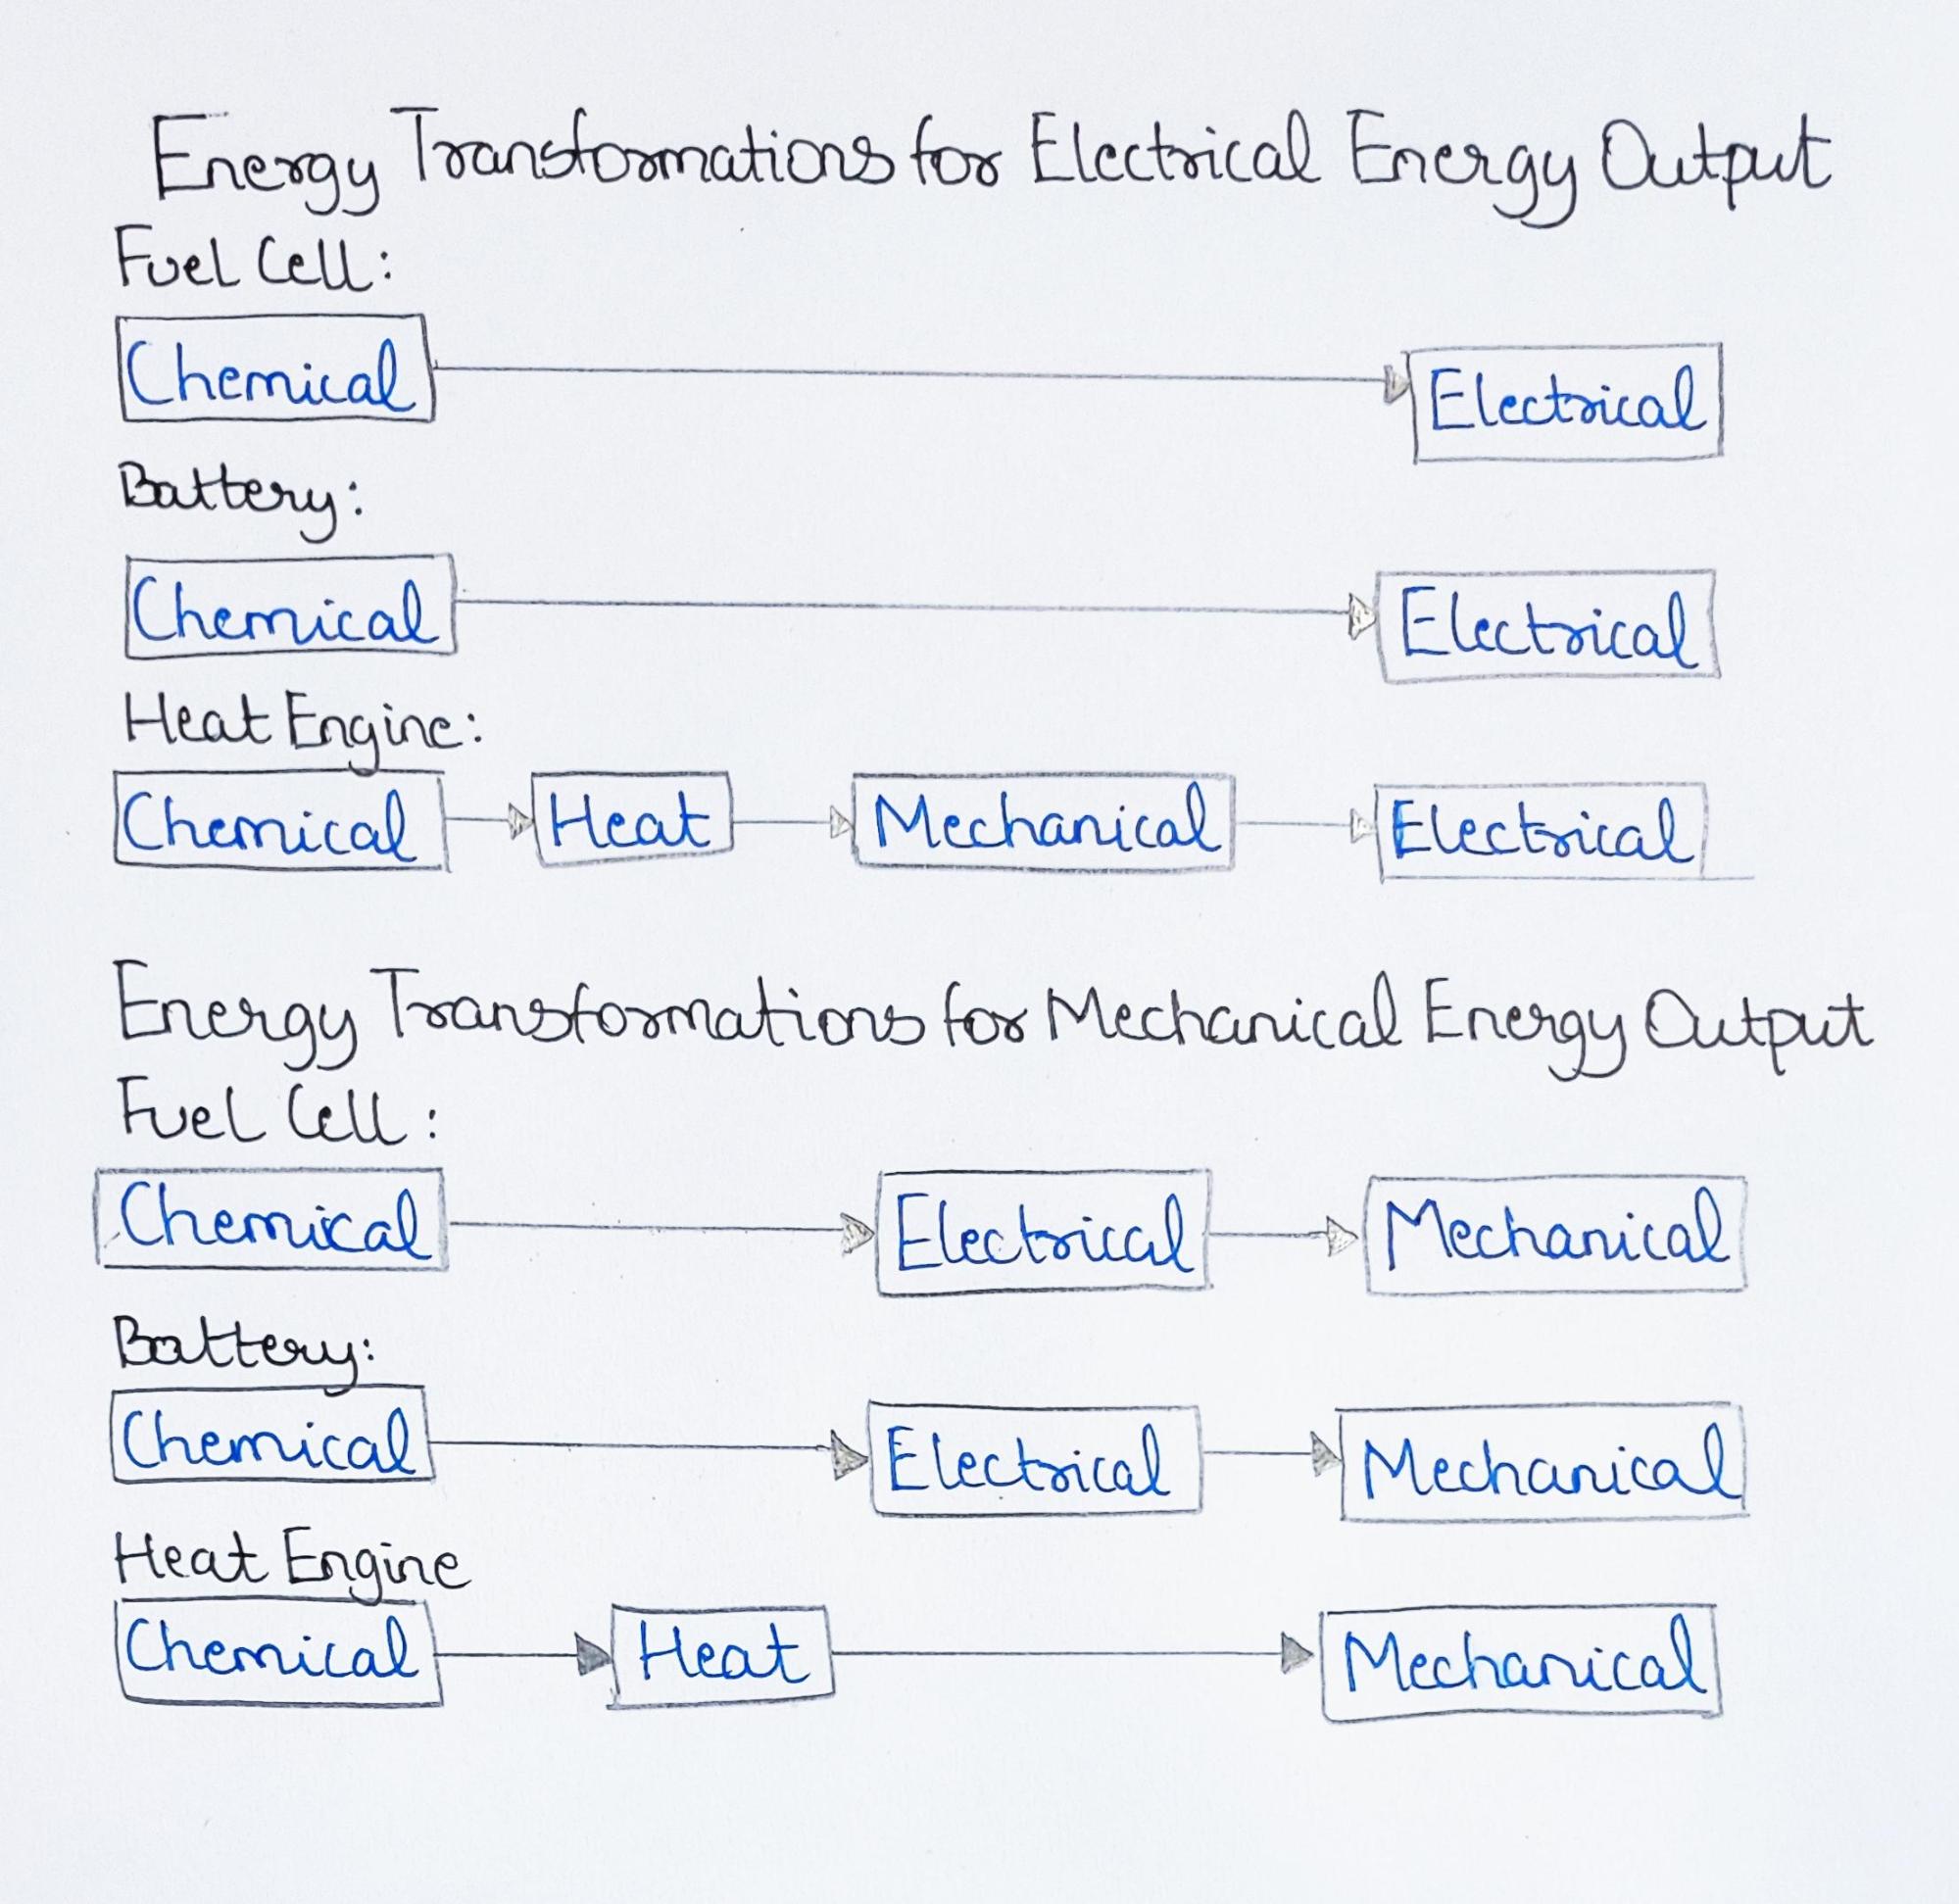 Energy Transformations for Electrical Energy Output
Fuel Cell:
Chemical Electrical
Battery:
Chemical Electrical
Heat Engine:
Chemical Heat Mechanical Electrical
Energy Transformations for Mechanical Energy Output
Fuel Cell:
Chemical Electrical Mechanical
Battery:
Chemical Electrical Mechanical
Heat Engine
Chemical Heat Mechanical